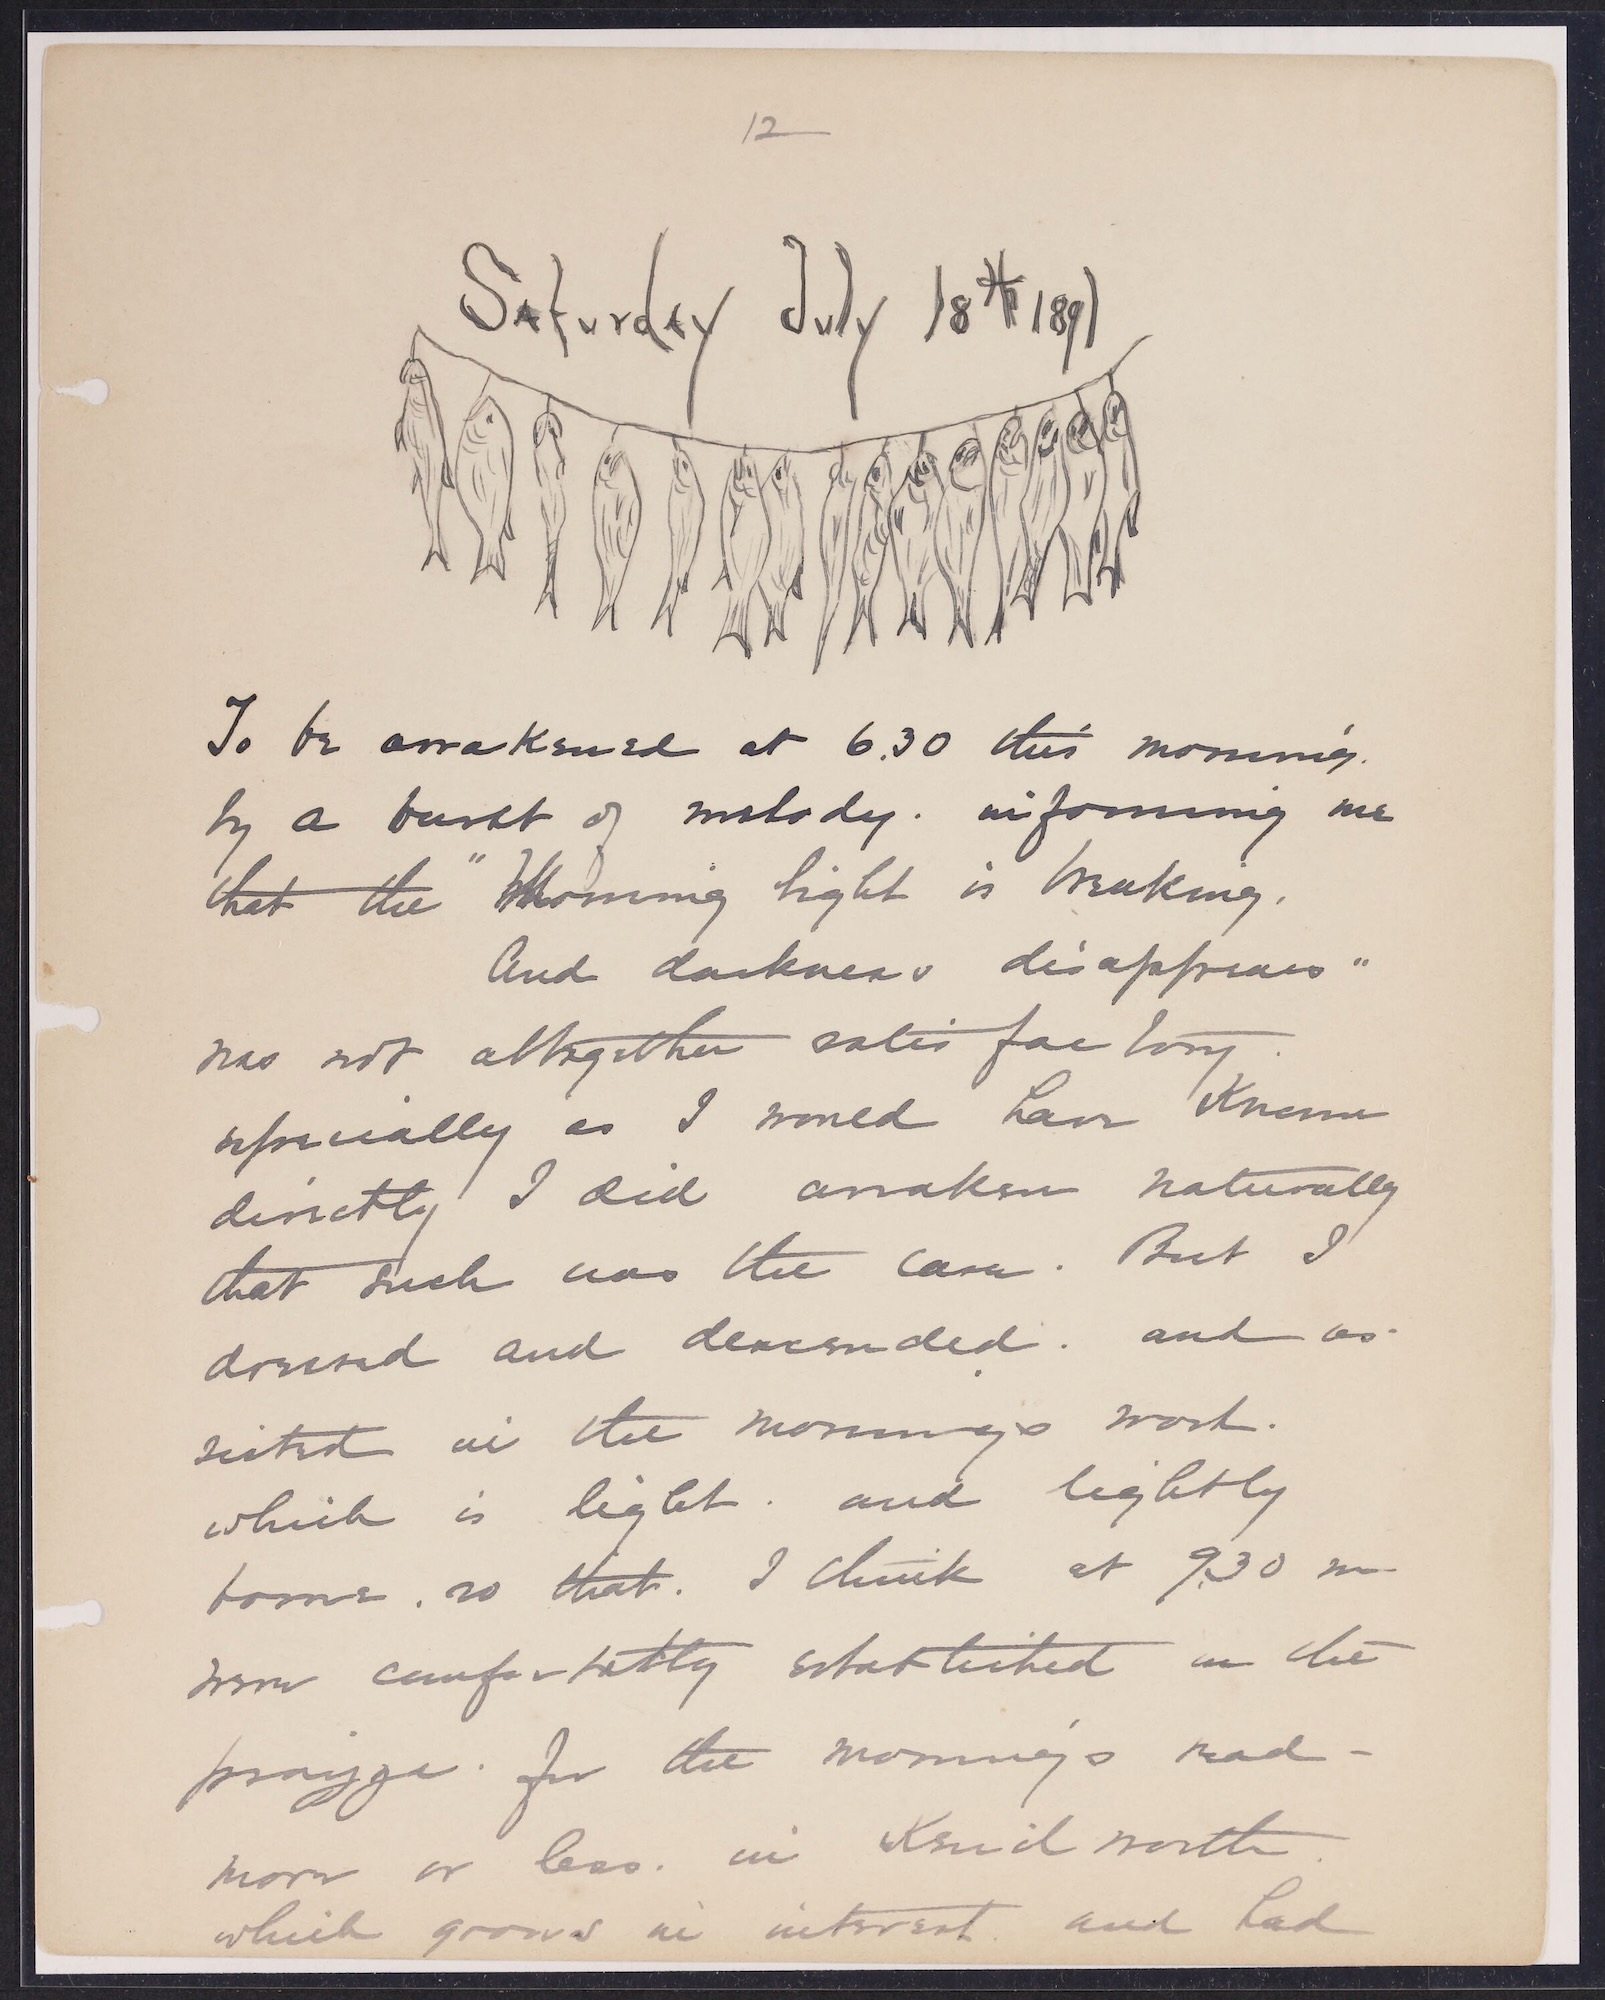 12
Saturday July 18th 1891
To be awakened at 6.30 this morning.
by a burst of melody. informing me
that the "Morning light is breaking.
And darkness disappears"
was not altogether satisfactory.
especially as I would have known
directly I did awaken naturally
that such was the case. But I
dressed and descended. and as-
sisted in the mornings work.
which is light. and lightly
borne. so that. I think at 9.30 we
were comfortably established on the
praizza. for the morning's read-
more or less. in Kenilworth.
which grows in interest. and had